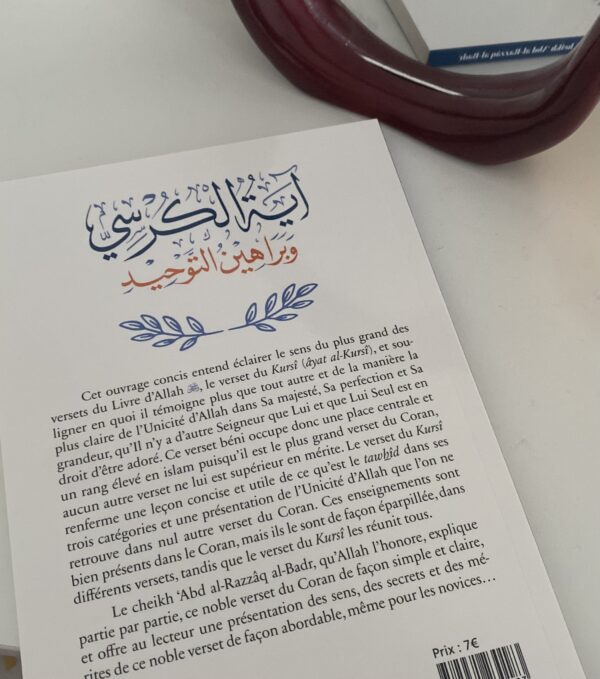 آيَةُ الْكُرْسِيِّ
وَبَرَاهِينُ التَّوْحِيدِ
Cet ouvrage concis entend éclairer le sens du plus grand des
versets du Livre d'Allah ﷻ, le verset du Kursî (âyat al-Kursî), et sou-
ligner en quoi il témoigne plus que tout autre et de la manière la
plus claire de l'Unicité d'Allah dans Sa majesté, Sa perfection et Sa
grandeur, qu'Il n'y a d'autre Seigneur que Lui et que Lui Seul est en
droit d'être adoré. Ce verset béni occupe donc une place centrale et
un rang élevé en islam puisqu'il est le plus grand verset du Coran,
aucun autre verset ne lui est supérieur en mérite. Le verset du Kursî
renferme une leçon concise et utile de ce qu'est le tawhîd dans ses
trois catégories et une présentation de l'Unicité d'Allah que l'on ne
retrouve dans nul autre verset du Coran. Ces enseignements sont
bien présents dans le Coran, mais ils le sont de façon éparpillée, dans
différents versets, tandis que le verset du Kursî les réunit tous.
Le cheikh 'Abd al-Razzâq al-Badr, qu'Allah l'honore, explique
partie par partie, ce noble verset du Coran de façon simple et claire,
et offre au lecteur une présentation des sens, des secrets et des mé-
rites de ce noble verset de façon abordable, même pour les novices…
Prix : 7€